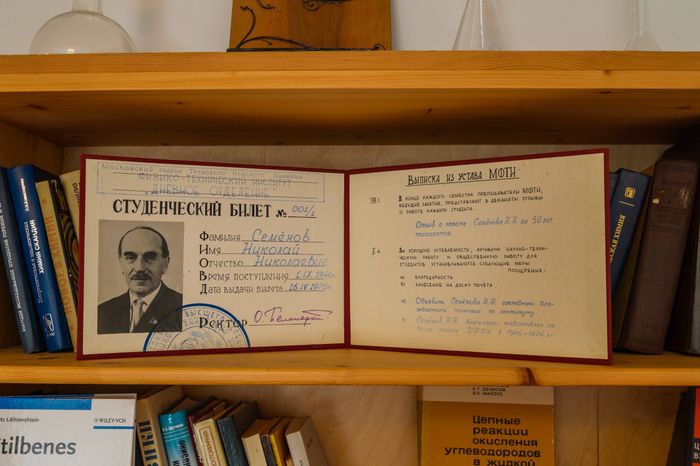 Московский ордена Трудового Красного Знамени
ФИЗИКО-ТЕХНИЧЕСКИЙ ИНСТИТУТ
ДНЕВНОЕ ОТДЕЛЕНИЕ
СТУДЕНЧЕСКИЙ БИЛЕТ № 001/1
Фамилия Семёнов
Имя Николай
Отчество Николаевич
Время поступления 1.IX.1946г.
Дата выдачи билета 16.IV.1976г.
Ректор
Выписка из устава МФТИ
В конце каждого семестра преподаватели МФТИ,
ведущие занятия, представляют в деканаты отзывы
о работе каждого студента.
Отзыв о работе Семёнова Н.Н. за 30 лет
прилагается.
За хорошую успеваемость, активную научно-техни-
ческую работу и общественную работу для
студентов устанавливаются следующие меры
поощрения:
а) благодарность
б) занесение на доску почёта.
а) Объявить Семёнову Н.Н. сердечную бла-
годарность приказом по институту.
б) Семёнов Н.Н. визуально представлен на
доске почёта МФТИ в 1946-1976 гг.
tz Lichtenstein
WILEY-VCH
tilbenes
Е.Т. ДЕНИСОВ
З.К. МАЙЗУС
Цепные
реакции
окисления
углеводородов
в жидкой